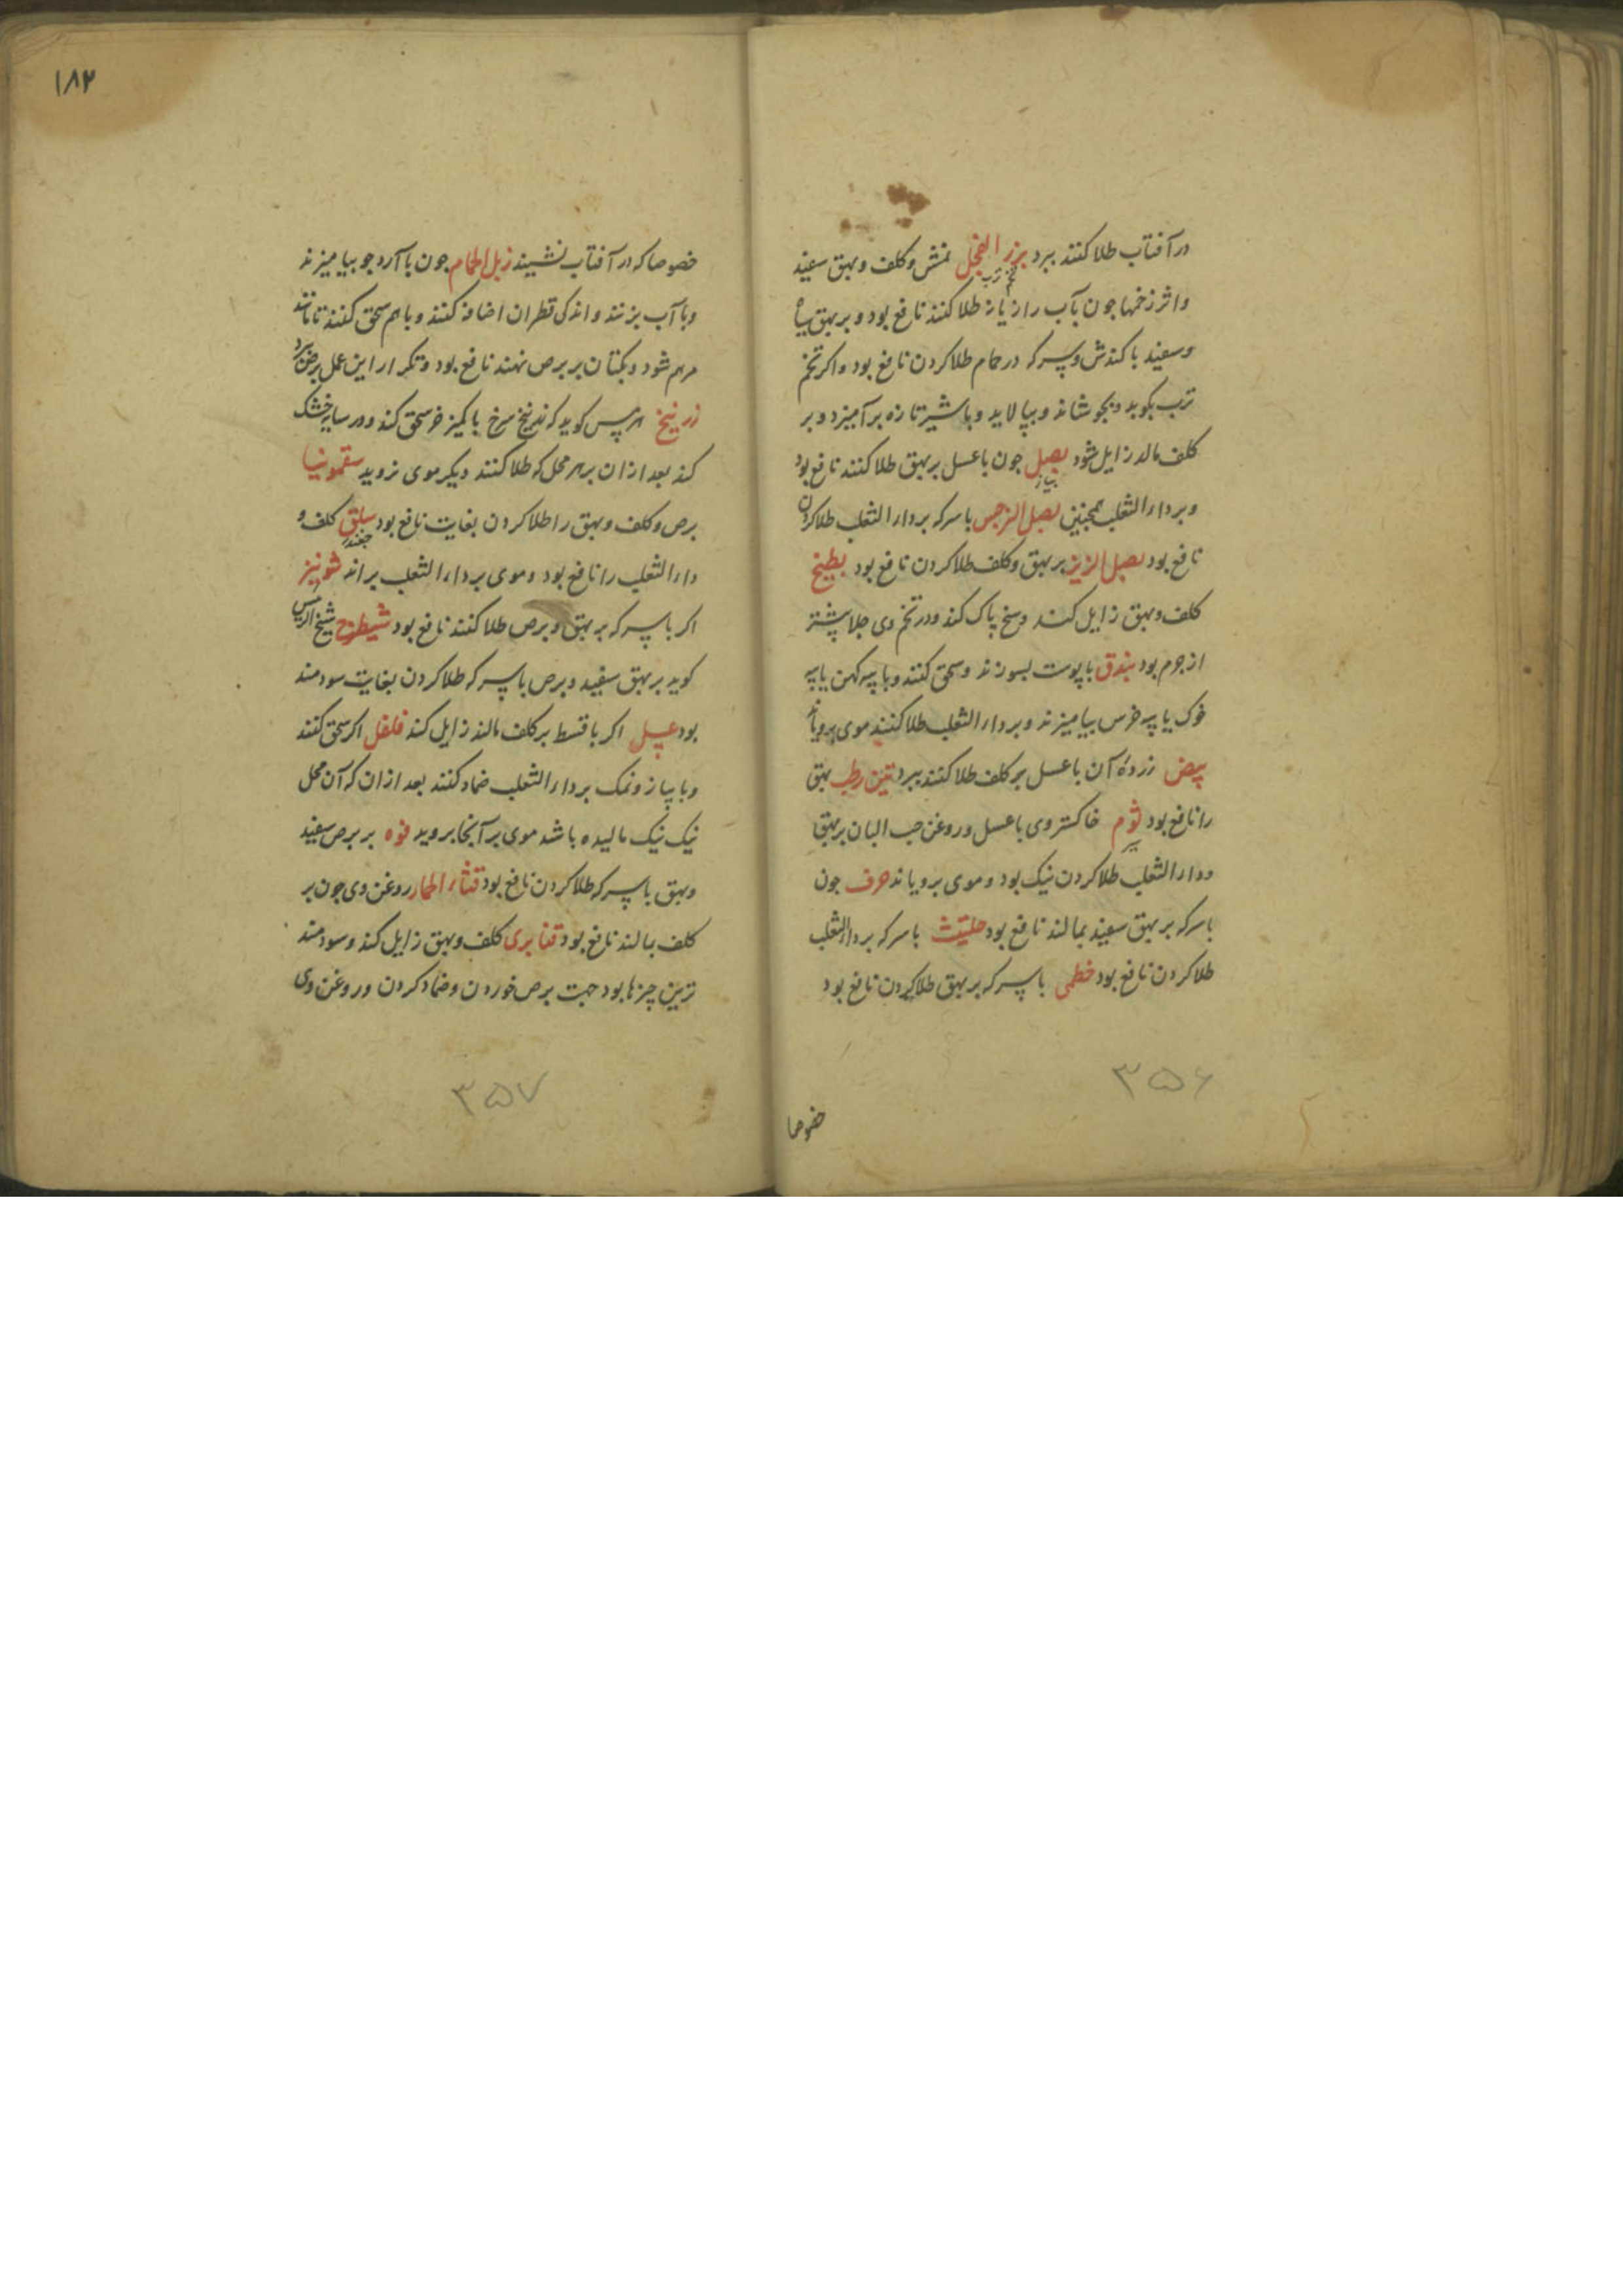 در آفتاب طلا کنند ببرد بزر الفجل نمش و کلف و بهق سفید
تخم ترب
و اثر زخمها جون بآب رازیانه طلا کنند نافع بود و بر بهق سیاه
و سفید با کندش و سرکه در حمام طلا کردن نافع بود و اکر تخم
ترب بکوبد و بجوشاند و بپالاید و باشیر تازه برآمیزد و بر
کلف مالد زایل شود بصل جون با عسل بر بهق طلا کنند نافع بود
پیاز
و بر داء الثعلب همجنین بصل النرجس با سرکه بر داء الثعلب طلا کردن
نافع بود بصل الزیز بر بهق و کلف طلا کردن نافع بود بطیخ
کلف و بهق زایل کند وسخ پاک کند و در تخم وی جلا پیشتر
از جرم بود بندق با پوست بسوزند و سحق کنند و با پیه کهن یا پیه
خوک یا پیه خرس بیامیزند و بر داء الثعلب طلا کنند موی برویاند
بیض زرده آن با عسل بر کلف طلا کنند ببرد تین رطب بهق
را نافع بود ثوم خاکستر وی با عسل و روغن حب البان بر بهق
سیر
و داء الثعلب طلا کردن نیک بود و موی برویاند حرف جون
با سرکه بر بهق سفید بمالند نافع بود حلتیث با سرکه بر داء الثعلب
طلا کردن نافع بود خطمی با سرکه بر بهق طلا کردن نافع بود
۳۵۶
خصوصا
۱۸۲
خصوصا که در آفتاب نشیند زبل الحمام جون با آرد جو بیامیزند
و با آب بزنند و اندکی قطران اضافه کنند و با هم سحق کنند تا مانند
مرهم شود و بکتان بر برص نهند نافع بود و تکرار این عمل برص ببرد
زرنیخ هرمس کوید که زرنیخ سرخ با کمیز خر سحق کند و در سایه خشک
کند بعد از ان بر هر محل که طلا کنند دیکر موی نروید سقمونیا
برص و کلف و بهق را طلا کردن بغایت نافع بود سلق کلف و
جغندر
داء الثعلب را نافع بود و موی بر داء الثعلب براند شونیز
اکر با سرکه بر بهق و برص طلا کنند نافع بود شیطرج شیخ الرئیس
کوید بر بهق سفید و برص با سرکه طلا کردن بغایت سودمند
بود عسل اکر با قسط بر کلف مالند زایل کند فلفل اکر سحق کنند
و با پیاز و نمک بر داء الثعلب ضماد کنند بعد از ان که آن محل
نیک نیک مالیده باشد موی بر آنجا بروید فوه بر برص سفید
و بهق با سرکه طلا کردن نافع بود قثاء الحمار روغن وی جون بر
کلف بمالند نافع بود قنابری کلف و بهق زایل کند و سودمند
ترین چیزها بود جهت برص خوردن و ضماد کردن و روغن وی
۳۵۷